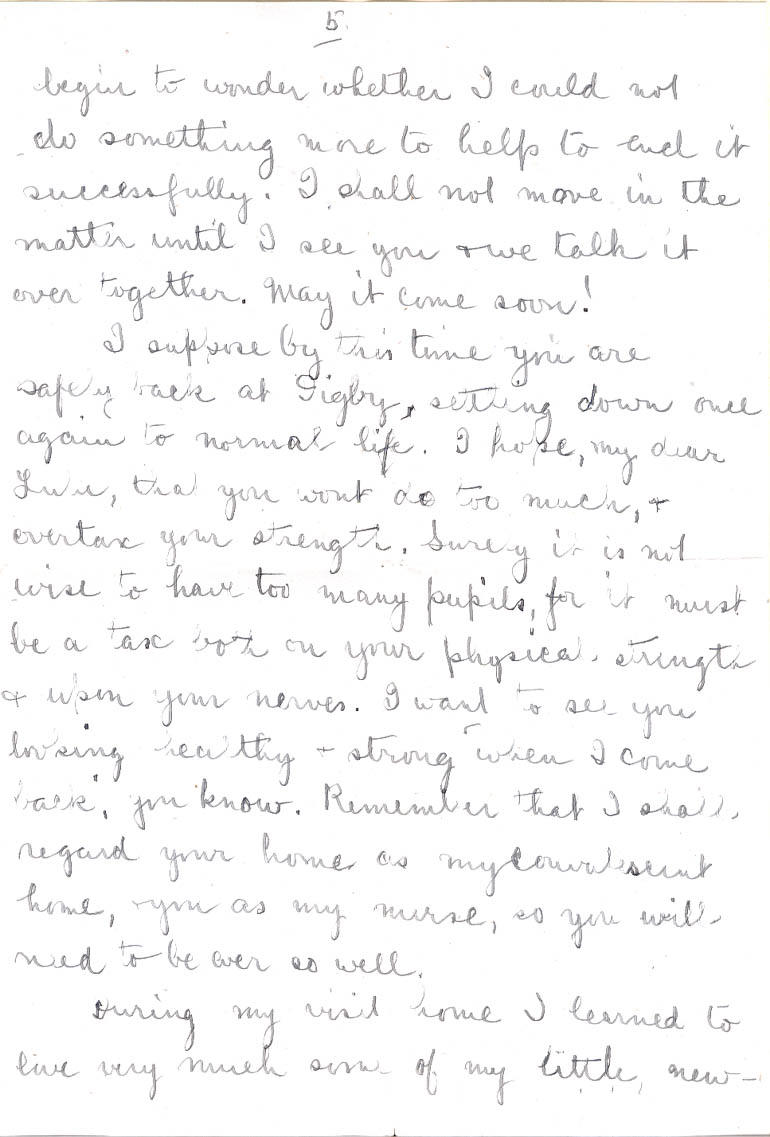 5.
begin to wonder whether I could not
do something more to help to end it
successfully. I shall not move in the
matter until I see you & we talk it
over together. May it come soon!
I suppose by this time you are
safely back at Pigby, setting down once
again to normal life. I hope, my dear
that you wont do too much, &
overtax your strength. Surely it is not
wise to have too many pupils, for it must
be a tax both on your physical strength
& upon your nerves. I want to see you
looking healthy & strong when I come
back, you know. Remember that I shall
regard your home as my convalescent
home, & you as my nurse, so you will
need to be ever so well.
During my visit home I learned to
live very much some of my little, new-